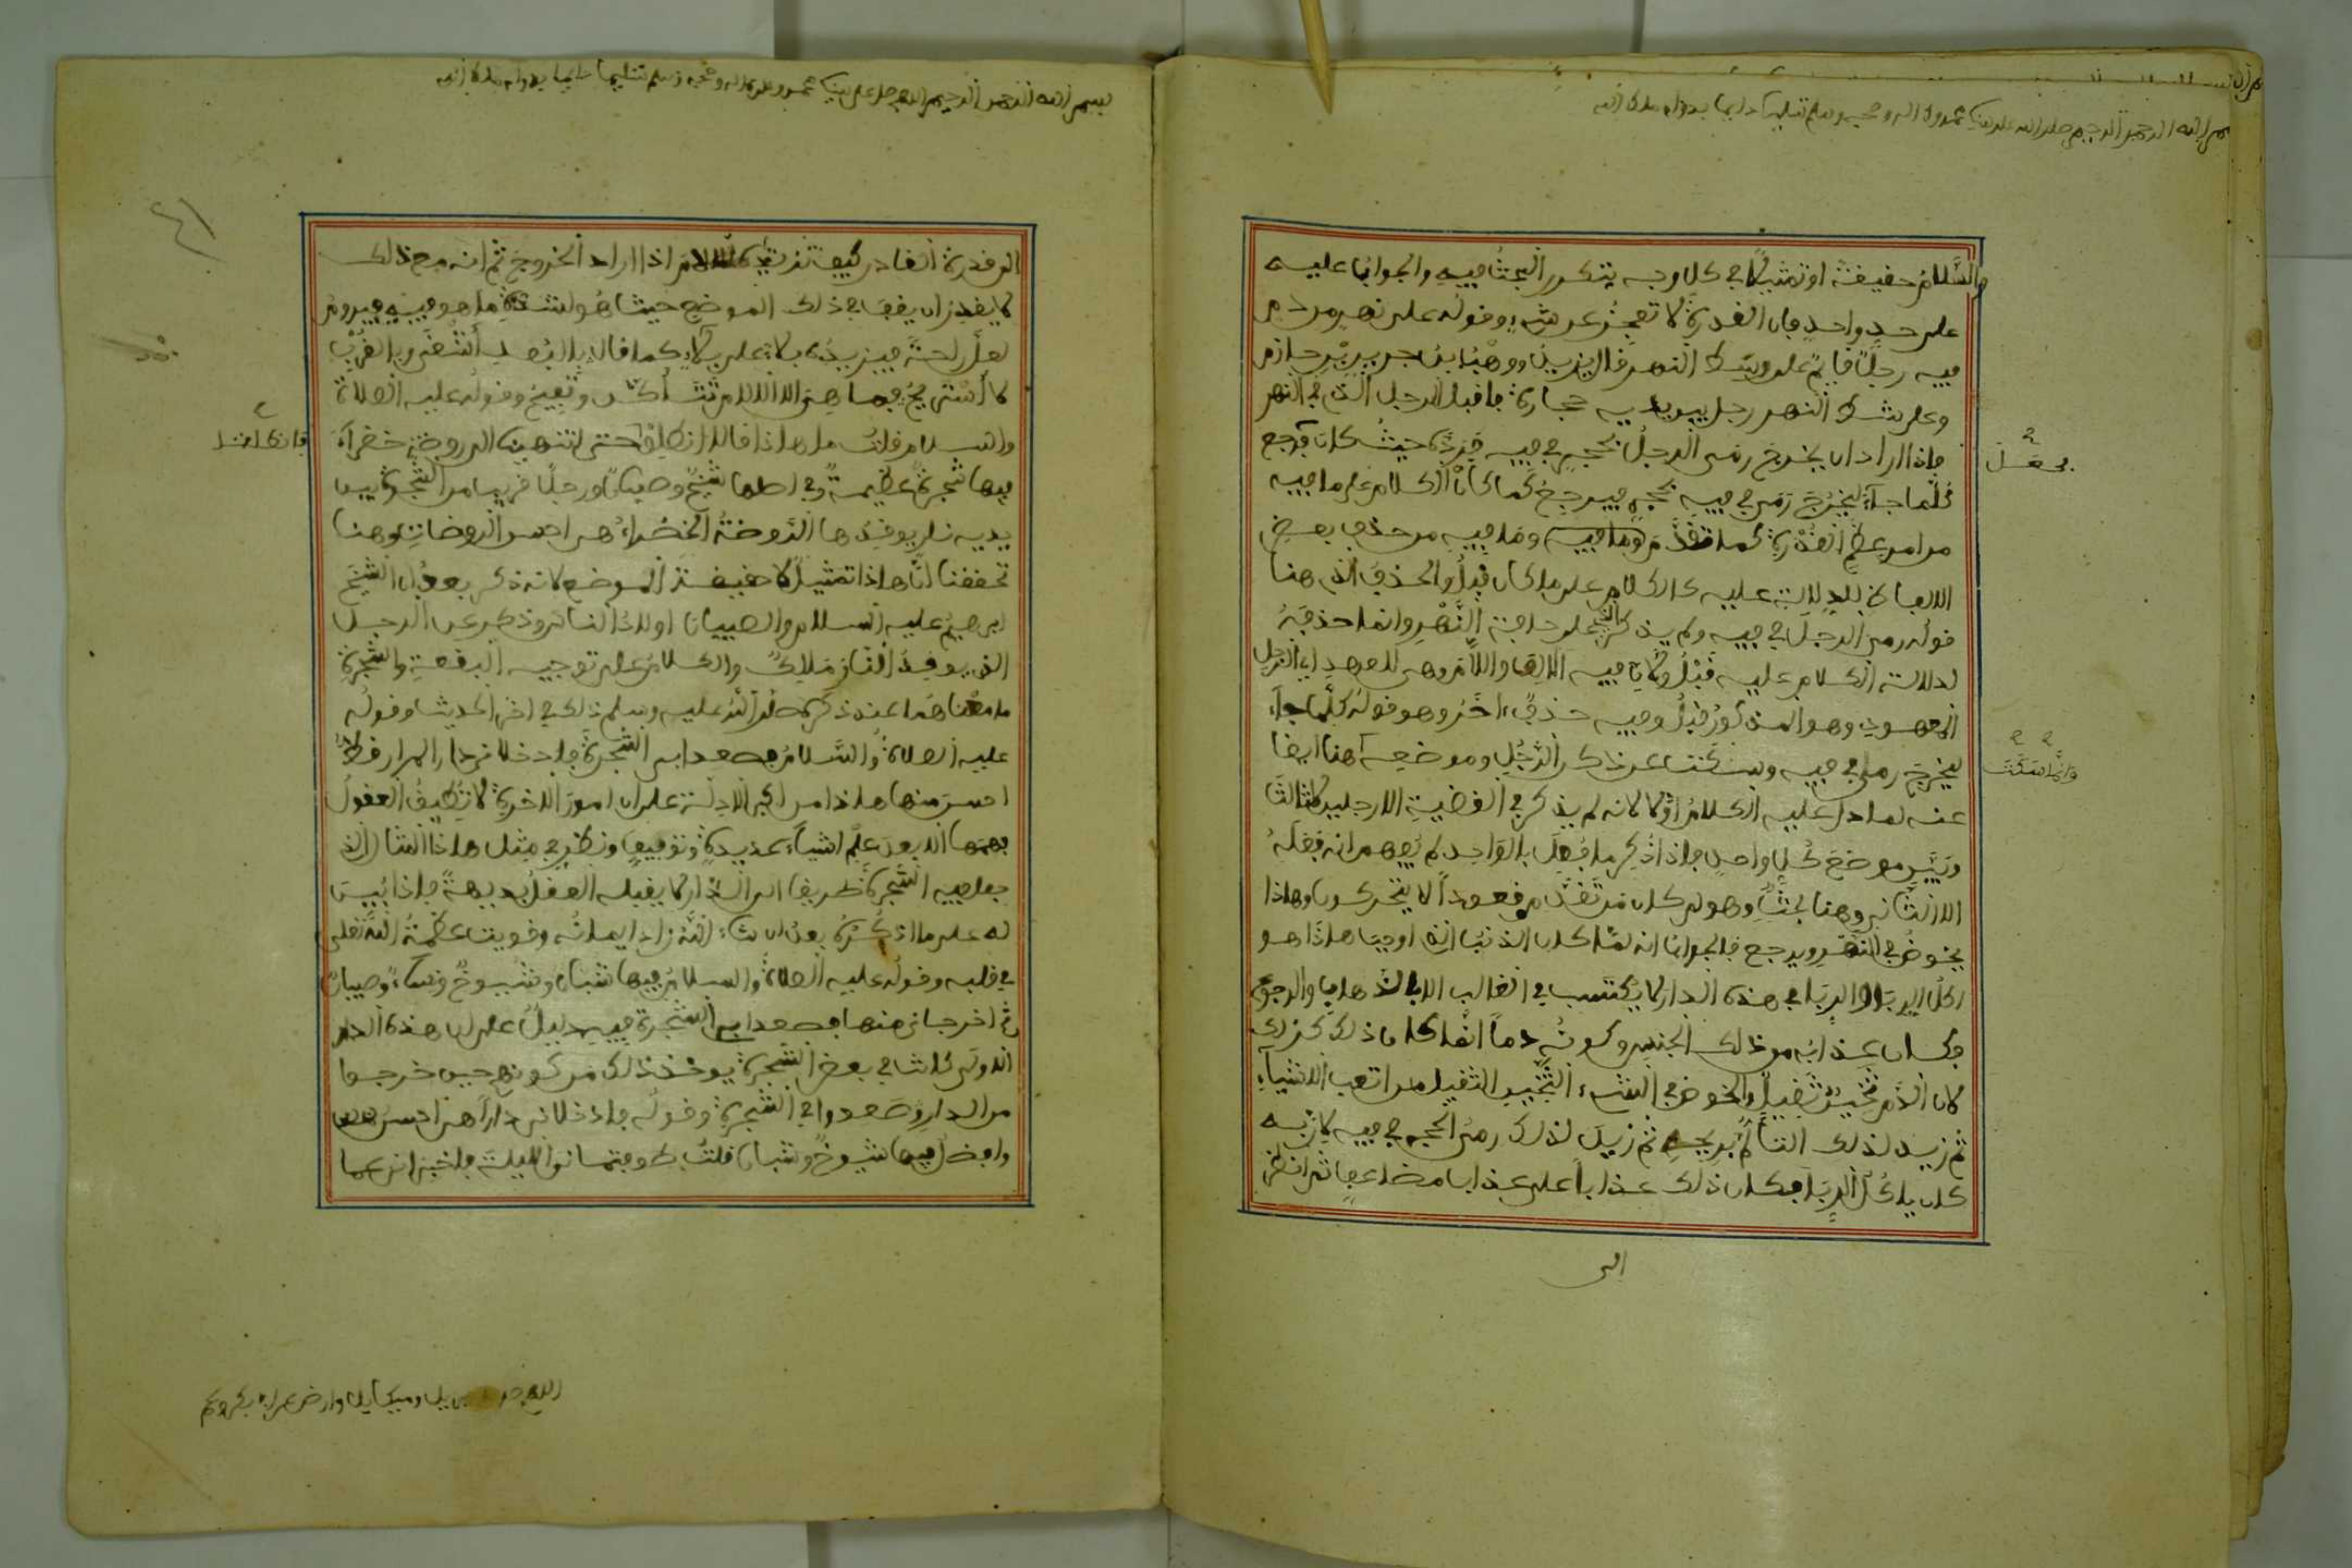 بسم الله الرحمن الرحيم صلى الله على نبينا محمد وءاله وصحبه وسلم تسليما دايما بدوام ملك الله
والسلام حقيقة او تمثيلا في كل وجه يتكرر البحث فيه والجواب عليه
على حد واحد فان القدرة لا تعجز عن شيء وقوله على نهر من دم
فيه رجل قايم على وسط النهر قال يزيد ووهب بن جرير بن حازم
وعلى شط النهر رجل بين يديه حجارة فاقبل الرجل الذي في النهر
فاذا اراد ان يخرج رمى الرجل بحجر في فيه فرده حيث كان فرجع
فجعل
كلما جاء ليخرج رمى في فيه بحجر فيرجع كما كان الكلام على ما فيه
من امر عظم القدرة كما تقدم وما فيه من حذف بعض
الالفاظ للدلالة عليه كالكلام على ما كان قبل والحذف الذي هنا
قوله رمى الرجل في فيه ولم يذكر الذي على حافة النهر وانما حذفه
لدلالة الكلام عليه قبل ولان فيه الالف واللام وهي للعهد اي الرجل
المعهود وهو المذكور قبل وفيه حذف اخر وهو قوله كلما جاء
ليخرج رمى في فيه وسكت عن ذكر الرجل وموضعه هنا ايضا
وانما سكت
عنه لما دل عليه الكلام اولا لانه لم يذكر في القضية الا رجلين لا ثالث
وبين موضع كل واحد فاذا ذكر ما فعل بالواحد لم يفهم انه فعله
الا الثاني وهنا بحث وهو لم كان من تقدم قعودا لا يتحركون وهذا
يخوض في النهر ويرجع فالجواب انه لما كان الذنب الذي اوجب هذا هو
اكل الربا والربا في هذه الدار لا يكتسب في الغالب الا بالذهاب والرجوع
فكان عذابه من ذلك الجنس وكونه دما انما كان ذلك كذلك
لان الدم ثخين ثقيل والخوض في الشيء الثخين الثقيل من اتعب الاشياء
ثم زيد لذلك التألم بريحه ثم زيد لذلك رمي الحجر في فيه لانه
كان ياكل الربا فكان ذلك عذابا على عذاب مضاعف ثم انظر
الى
بسم الله الرحمن الرحيم اللهم صل على نبينا محمد وءاله وصحبه وسلم تسليما دايما بدوام ملك الله
الى قدرة القادر كيف اذا اراد الخروج ثم انه مع ذلك
لا يقدر ان يقف في ذلك الموضع حيث هو لشدة ما هو فيه فيروم
لعل راحة فيزيده بلاء على بلاء كما قال بالبعد اشقى وبالقرب
لا
والسلام قلت ما هذا قالا انطلق حتى انتهينا الى روضة خضراء
فانطلقنا
فيها شجرة عظيمة وفي اصلها شيخ وصبيان ورجل قريب من الشجرة بين
يديه نار يوقدها الروضة الخضراء هي احسن الروضات وهنا
تحققنا ان هذا تمثيل لا حقيقة الموضع لانه ذكر بعد ان الشيخ
ابرهيم عليه السلام والصبيان اولاد الناس وذكر عن الرجل
الذي يوقد النار ملك والكلام على توجيه البقعة والشجرة
ما معناهما عند ذكره صلى الله عليه وسلم ذلك في اخر الحديث وقوله
عليه الصلاة والسلام فصعدا بي الشجرة فادخلاني دارا لم ار قط
احسن منها هذا من اكبر الادلة على ان امور الاخرة لا تطيق العقول
فهمها الا بعد علم اشياء عديدة وتوفيق ونظر في مثل هذا المثال الذي
جعل فيه الشجرة طريقا الى الدار لا يقبله العقل بديهة فاذا بين
له على ما اذكره بعد ان شاء الله زاد ايمانه وقويت عظمة الله تعلى
في قلبه وقوله عليه الصلاة والسلام فيها شباب وشيوخ ونساء وصبيان
ثم اخرجاني منها فصعدا بي الشجرة فيه دليل على ان هذه الدار
الاولى كانت في بعض الشجرة يوخذ ذلك من كونهم حين خرجوا
من الدار صعدوا في الشجرة وقوله فادخلاني دارا هي احسن
وافضل فيها شيوخ وشباب قلت طوفتماني الليلة فاخبراني عما